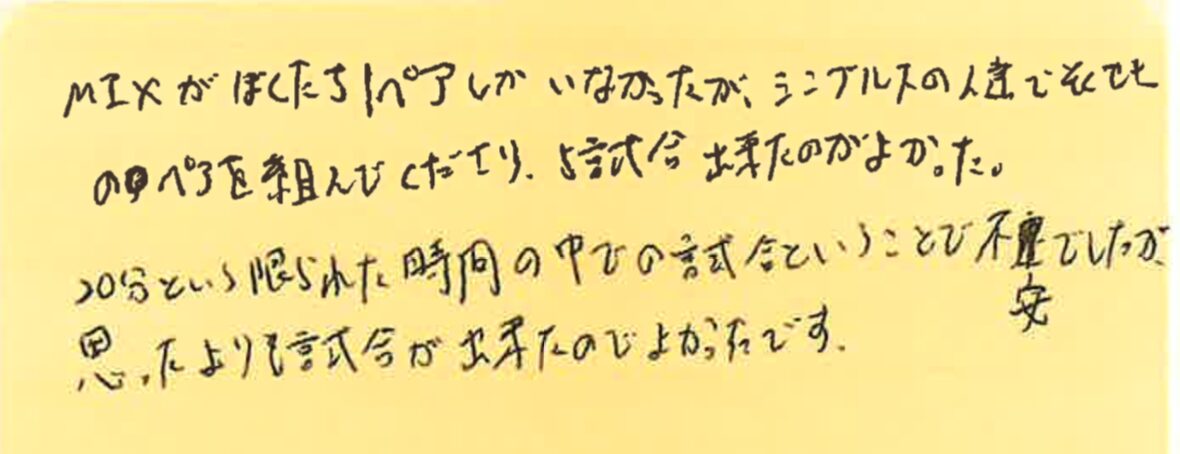 MIXがぼくたち1ペアしかいなかったが、シングルスの人達でそくせき
のペアを組んでくださり、5試合出来たのがよかった。
20分という限られた時間の中での試合ということで不安でしたが
思ったよりも試合が出来たのでよかったです.